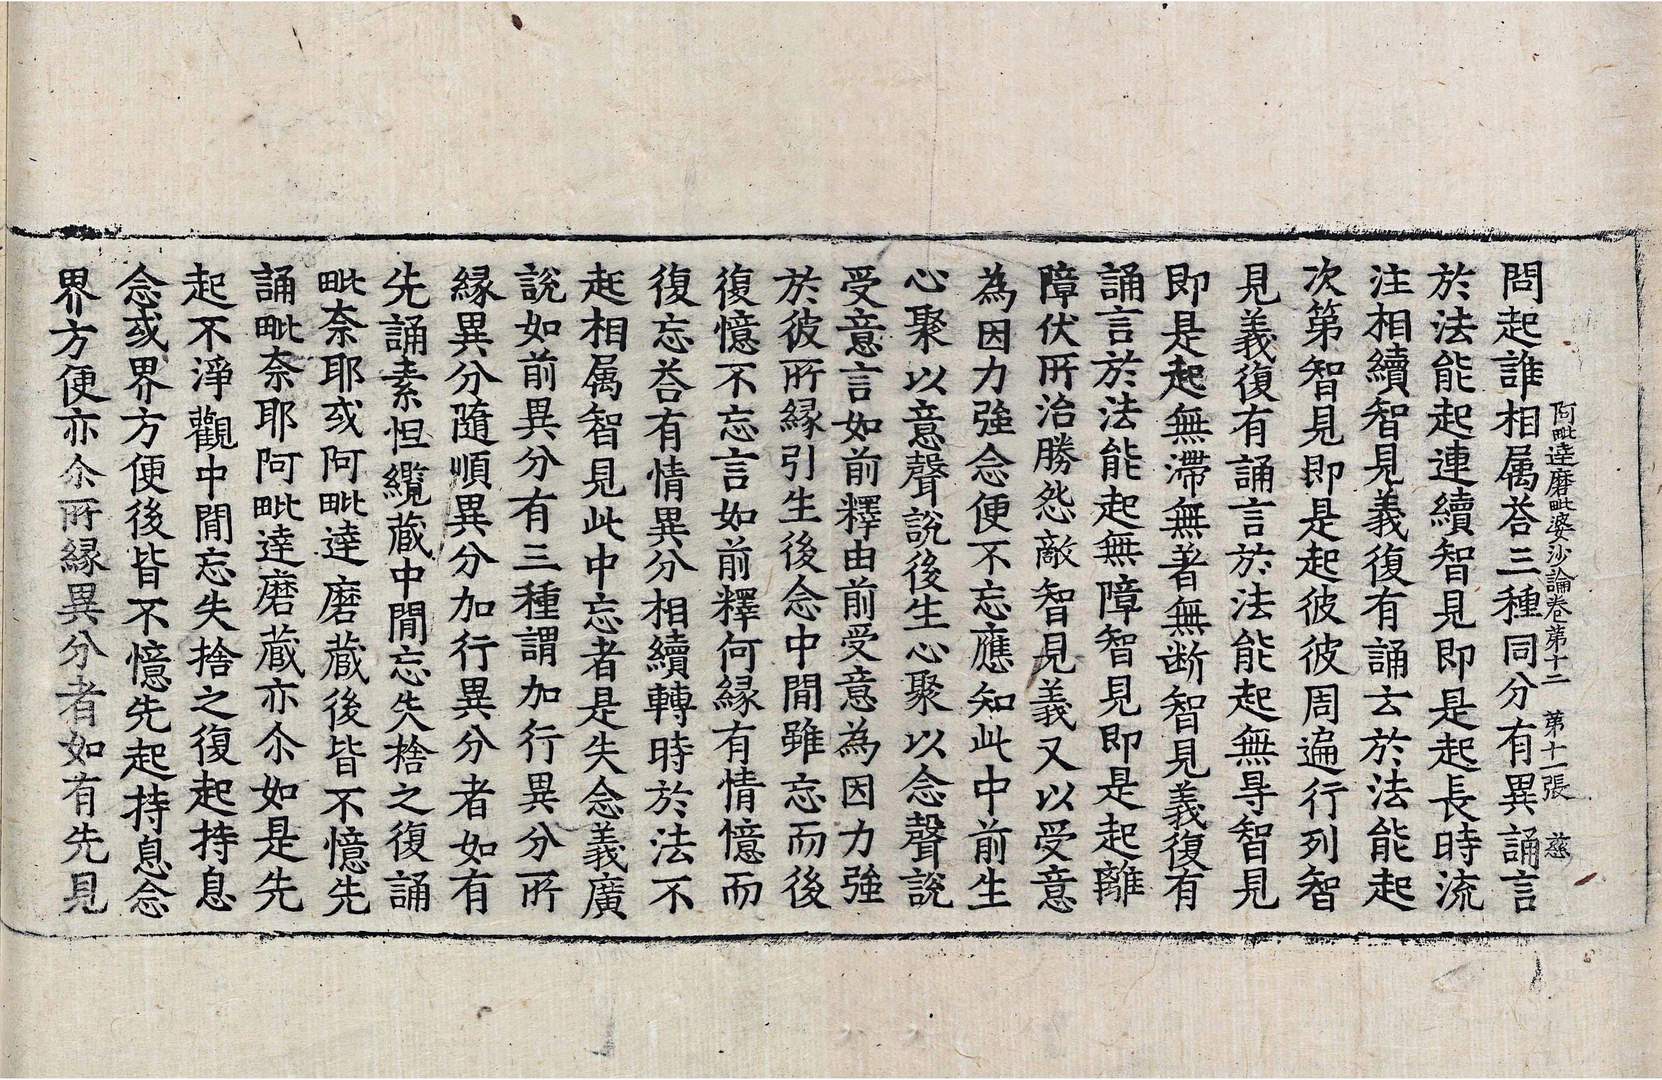 阿毗達磨毗婆沙論卷第十二 第十一張 慈
問起誰相属荅三種同分有異誦言
於法能起連續智見即是起長時流
注相續智見義復有誦去於法能起
次第智見即是起彼彼周遍行列智
見義復有誦言於法能起無㝵智見
即是起無滯無著無断智見義復有
誦言於法能起無障智見即是起離
障伏所治勝怨敵智見義又以受意
為因力強念便不忘應知此中前生
心聚以意聲說後生心聚以念聲說
受意言如前釋由前受意為因力強
於彼所縁引生後念中閒雖忘而後
復憶不忘言如前釋何縁有情憶而
復忘荅有情異分相續轉時於法不
起相属智見此中忘者是失念義廣
說如前異分有三種謂加行異分所
縁異分隨順異分加行異分者如有
先誦素怛纜蔵中閒忘失捨之復誦
毗奈耶或阿毗達磨蔵後皆不憶先
誦毗奈耶阿毗達磨蔵亦尒如是先
起不淨觀中閒忘失捨之復起持息
念或界方便後皆不憶先起持息念
界方便亦尒所縁異分者如有先見